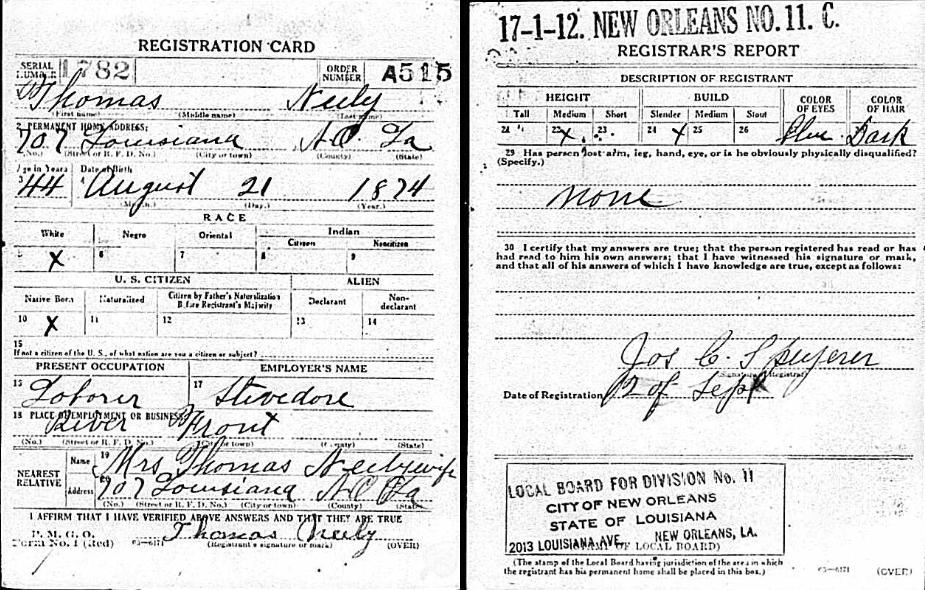 REGISTRATION CARD
SERIAL NUMBER 1782 ORDER NUMBER A515
Thomas Neely
(First name) (Middle name) (Last name)
2 PERMANENT HOME ADDRESS:
707 Louisiana N.O. La
(No.) (Street or R. F. D. No.) (City or town) (County) (State)
Age in Years Date of Birth
3 44 4 August 21 1874
(Month.) (Day.) (Year.)
RACE
White Negro Oriental Indian
Citizen Noncitizen
5 X 6 7 8 9
U. S. CITIZEN ALIEN
Native Born Naturalized Citizen by Father's Naturalization Before Registrant's Majority Declarant Non-declarant
10 X 11 12 13 14
15
If not a citizen of the U. S., of what nation are you a citizen or subject?
PRESENT OCCUPATION EMPLOYER'S NAME
Laborer 17 Stevedore
18 PLACE OF EMPLOYMENT OR BUSINESS:
River Front
(No.) (Street or R. F. D. No.) (City or town) (County) (State)
NEAREST RELATIVE
Name 19 Mrs Thomas Neely wife
Address 20 707 Louisiana N.O La
(No.) (Street or R. F. D. No.) (City or town) (County) (State)
I AFFIRM THAT I HAVE VERIFIED ABOVE ANSWERS AND THAT THEY ARE TRUE
P. M. G. O.
Form No. 1 (Red) 03—6171 Thomas Neely
(Registrant's signature or mark) (OVER)
17-1-12. NEW ORLEANS NO. 11. C.
REGISTRAR'S REPORT
DESCRIPTION OF REGISTRANT
HEIGHT BUILD COLOR OF EYES COLOR OF HAIR
Tall Medium Short Slender Medium Stout
21 22 X 23 24 X 25 26 Blue Dark
29 Has person lost arm, leg, hand, eye, or is he obviously physically disqualified?
(Specify.)
none
30 I certify that my answers are true; that the person registered has read or has
had read to him his own answers; that I have witnessed his signature or mark,
and that all of his answers of which I have knowledge are true, except as follows:
Jos C. Speyerer
Date of Registration 12 of Sept
LOCAL BOARD FOR DIVISION No. 11
CITY OF NEW ORLEANS
STATE OF LOUISIANA
2013 LOUISIANA AVE. NEW ORLEANS, LA.
(STAMP OF LOCAL BOARD)
(The stamp of the Local Board having jurisdiction of the area in which
the registrant has his permanent home shall be placed in this box.)
03—6171 (OVER)